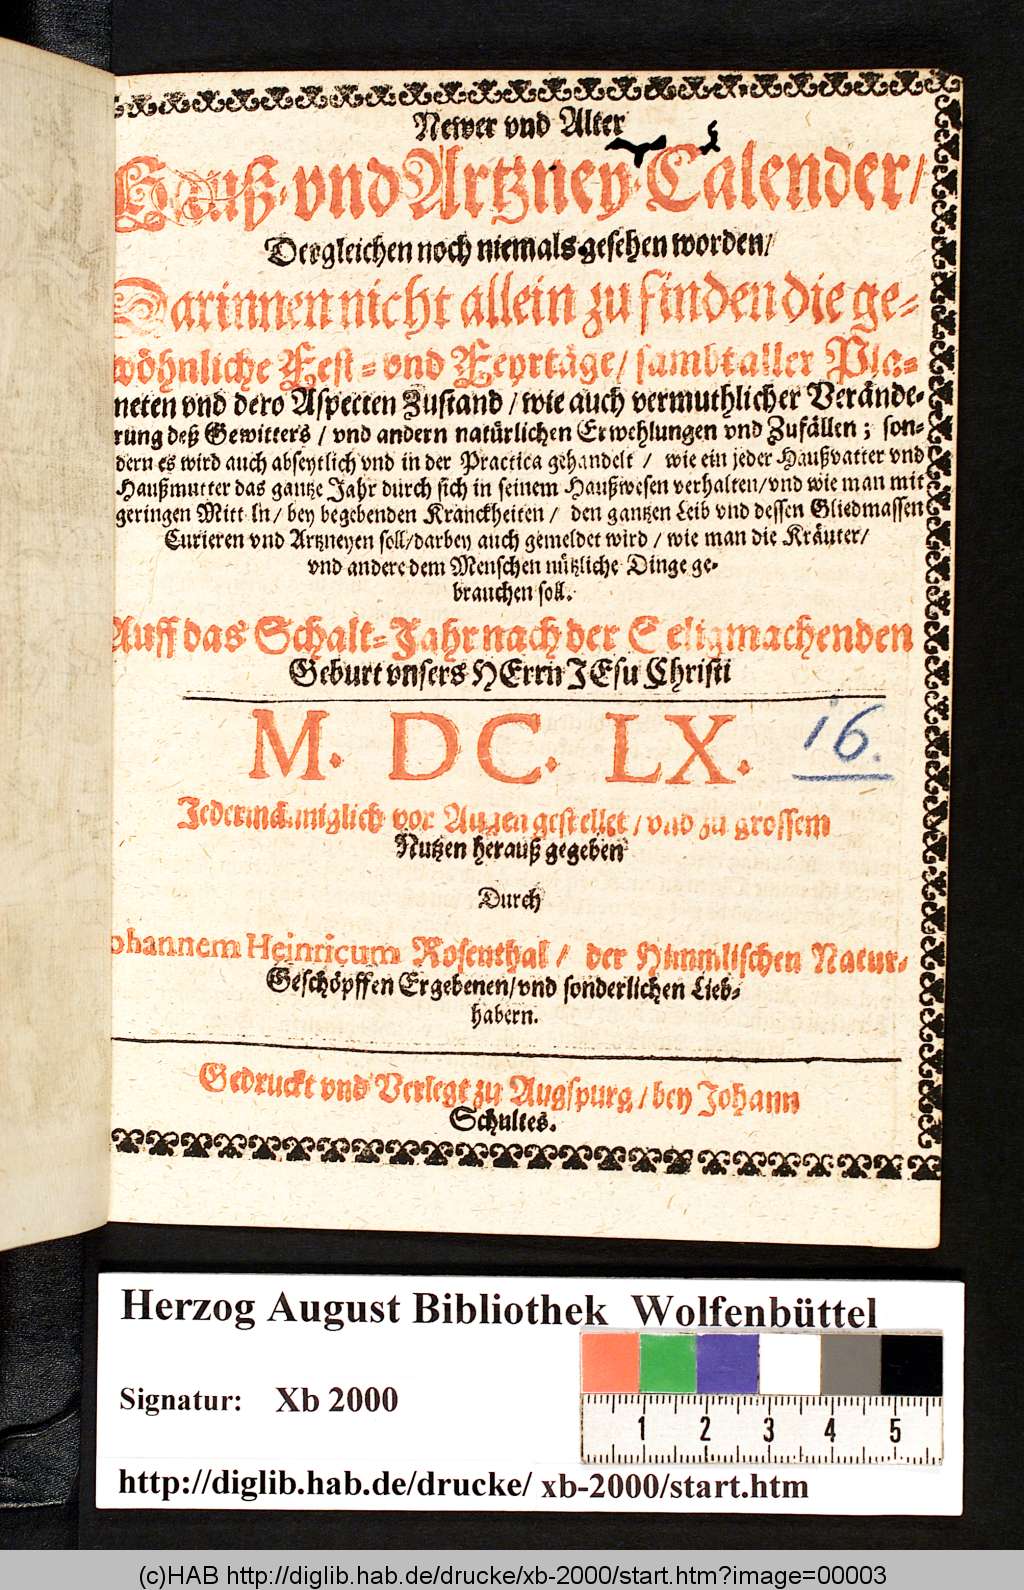 Newer vnd Alter
Hauß- vnd Artzney-Calender /
Dergleichen noch niemals gesehen worden /
Darinnen nicht allein zu finden die ge-
wöhnliche Fest- vnd Feyrtäge / sambt aller Pla-
neten vnd dero Aspecten Zustand / wie auch vermuthlicher Verände-
rung deß Gewitters / vnd andern natürlichen Erwehlungen vnd Zufällen ; son-
dern es wird auch abseytlich vnd in der Practica gehandelt / wie ein jeder Haußvatter vnd
Haußmutter das gantze Jahr durch sich in seinem Haußwesen verhalten / vnd wie man mit
geringen Mittln / bey begebenden Kranckheiten / den gantzen Leib vnd dessen Gliedmassen
Curieren vnd Artzneyen soll / darbey auch gemeldet wird / wie man die Kräuter /
vnd andere dem Menschen nützliche Dinge ge-
brauchen soll.
Auff das Schalt-Jahr nach der Seligmachenden
Geburt vnsers HErrn JEsu Christi
M. DC. LX.
16.
Jedermänniglich vor Augen gestellet / vnd zu grossem
Nutzen herauß gegeben
Durch
ohannem Heinricum Rosenthal / der Himmlischen Natur-
Geschöpffen Ergebenen / vnd sonderlichen Lieb-
habern.
Gedruckt vnd Verlegt zu Augspurg / bey Johann
Schultes.
Herzog August Bibliothek Wolfenbüttel
Signatur: Xb 2000
1 2 3 4 5
http://diglib.hab.de/drucke/ xb-2000/start.htm
(c)HAB http://diglib.hab.de/drucke/xb-2000/start.htm?image=00003